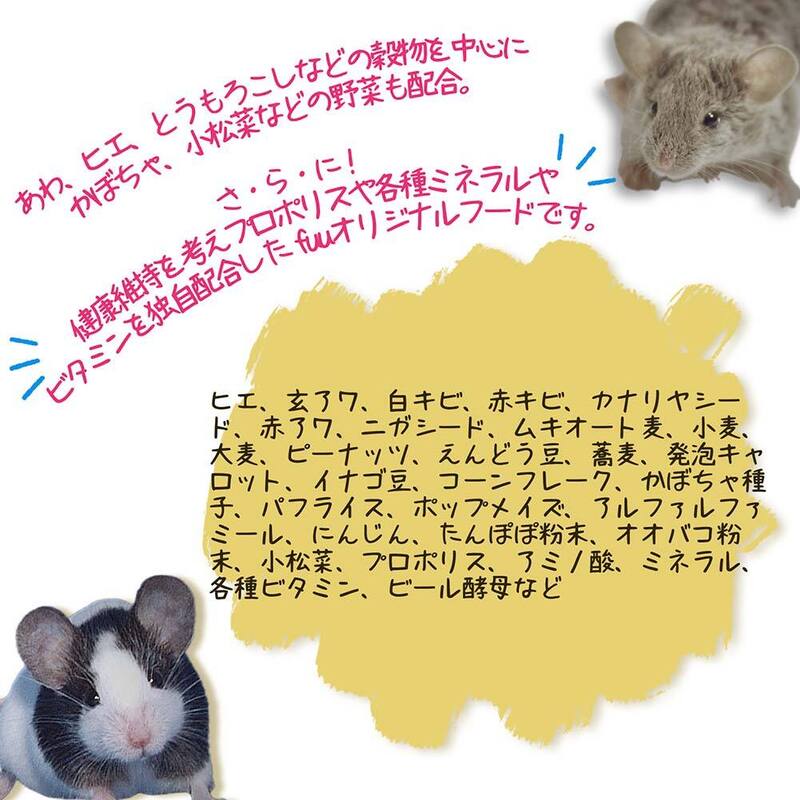 あわ、ヒエ、とうもろこしなどの穀物を中心に
かぼちゃ、小松菜などの野菜も配合。
さ・ら・に！
健康維持を考えプロポリスや各種ミネラルや
ビタミンを独自配合したfuuオリジナルフードです。
ヒエ、玄アワ、白キビ、赤キビ、カナリヤシー
ド、赤アワ、ニガシード、ムキオート麦、小麦、
大麦、ピーナッツ、えんどう豆、蕎麦、発泡キャ
ロット、イナゴ豆、コーンフレーク、かぼちゃ種
子、パフライス、ポップメイズ、アルファルファ
ミール、にんじん、たんぽぽ粉末、オオバコ粉
末、小松菜、プロポリス、アミノ酸、ミネラル、
各種ビタミン、ビール酵母など